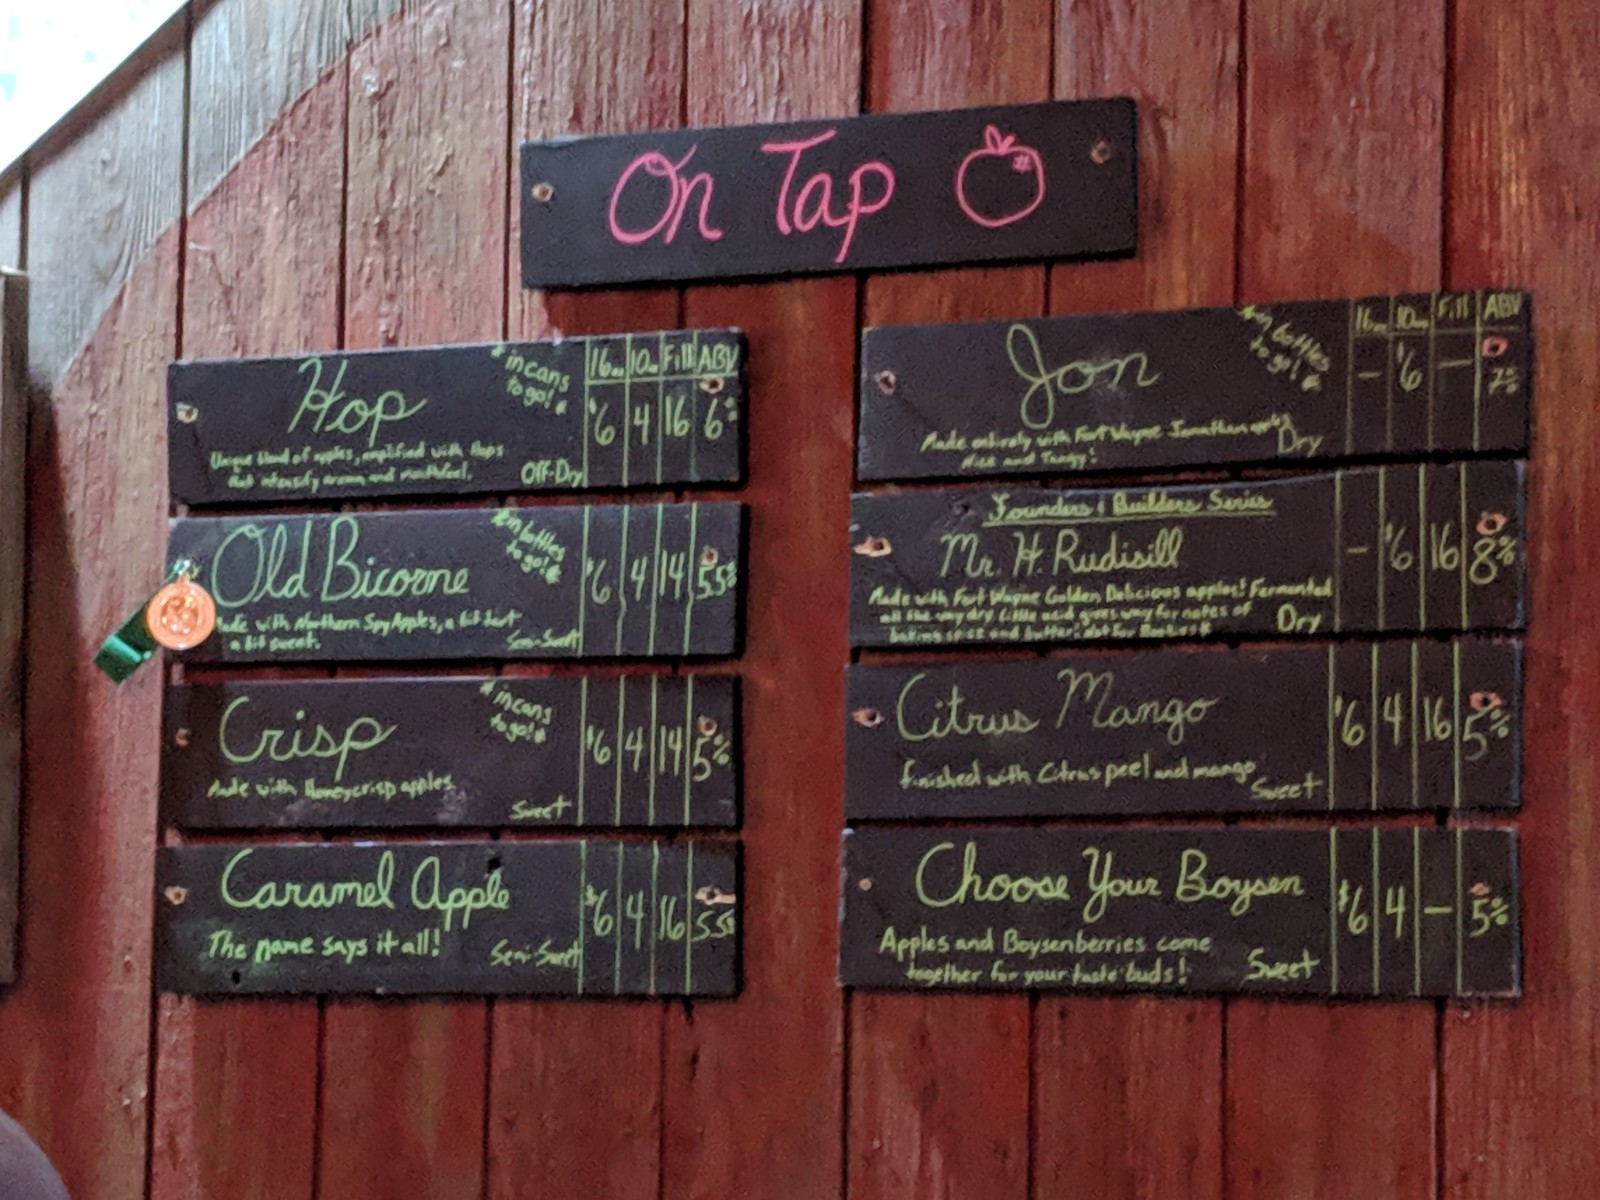 On Tap
Hop
*in cans
to go!*
16oz 10oz Fill ABV
$6 4 16 6%
Unique blend of apples, amplified with Hops
that intensify aroma and mouthfeel.
Off-Dry
Old Bicorne
*in bottles
to go!*
$6 4 14 5.5%
Made with Northern Spy Apples, a bit tart
a bit sweet.
Semi-Sweet
Crisp
*in cans
to go!*
$6 4 14 5%
Made with Honeycrisp apples.
Sweet
Caramel Apple
$6 4 16 5.5%
The name says it all!
Semi-Sweet
Jon
*in bottles
to go!*
16oz 10oz Fill ABV
- $6 - 7%
Made entirely with Fort Wayne Jonathan apples
Nice and Tangy!
Dry
Founders & Builders Series
Mr. H. Rudisill
- $6 16 8%
Made with Fort Wayne Golden Delicious apples! Fermented
all the way dry little acid gives way for notes of
baking spice and butter. Not for Rookies*
Dry
Citrus Mango
$6 4 16 5%
finished with Citrus peel and mango
Sweet
Choose Your Boysen
$6 4 - 5%
Apples and Boysenberries come
together for your taste buds!
Sweet